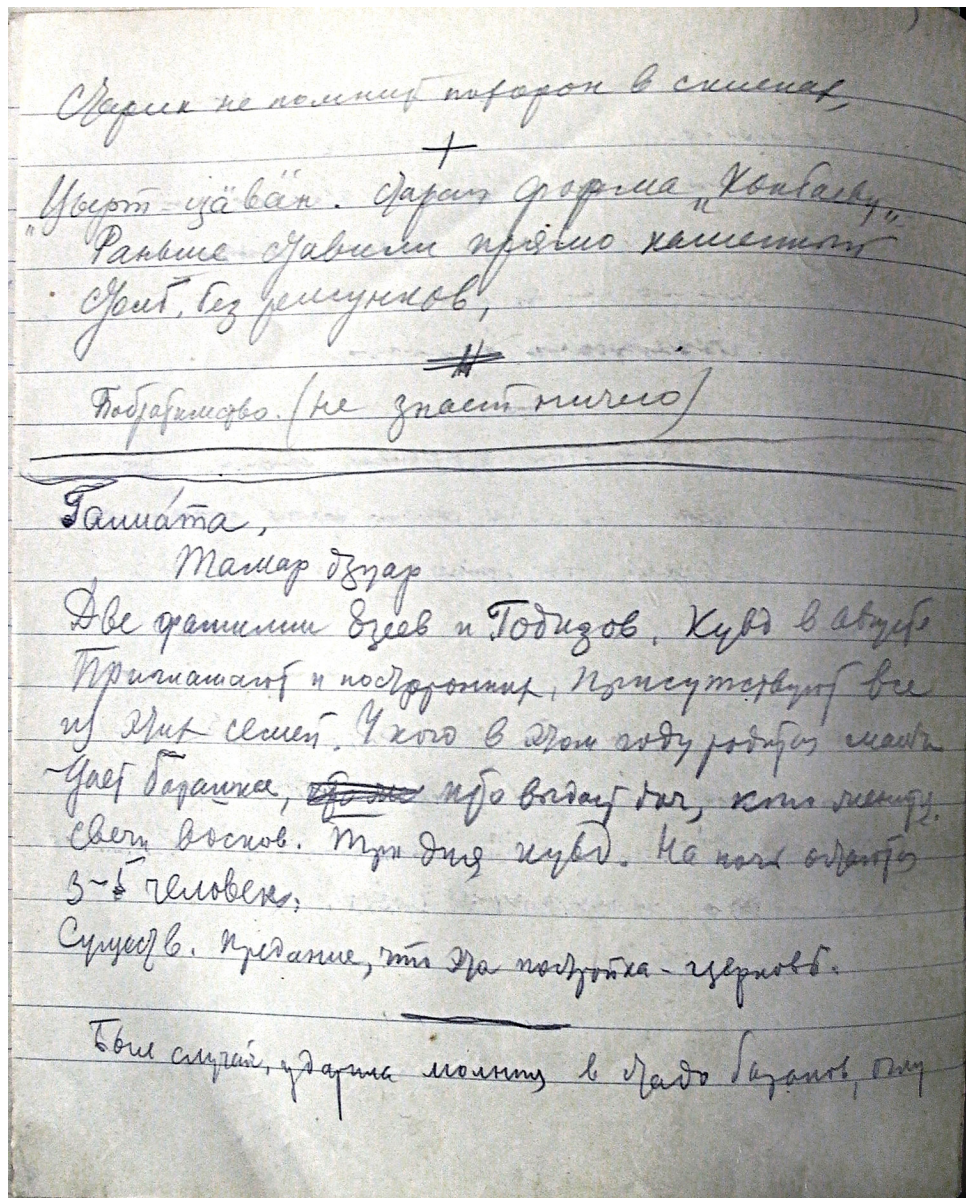 Старик не помнит похорон в склепах,
+
"Цырт цӓвӓн. Старая форма "Хонбаеву"
Раньше ставили прямо каменный
столб, без рисунков,
Побратимство. (не знает ничего)
Галиа́та,
Тамар дзуар
Две фамилии Озеев и Гобизов, Кувд в августе
Приглашают и посторонних, присутствуют все
из этих семей. У кого в этом году родится мальч
дает барашка, кто выдает доч, кто женится.
свечи восков. Три дня кувд. На ночь остаются
3-5 человек.
Существ. предание, что эта постройка - церковь.
Был случай, ударила молния в стадо баранов,